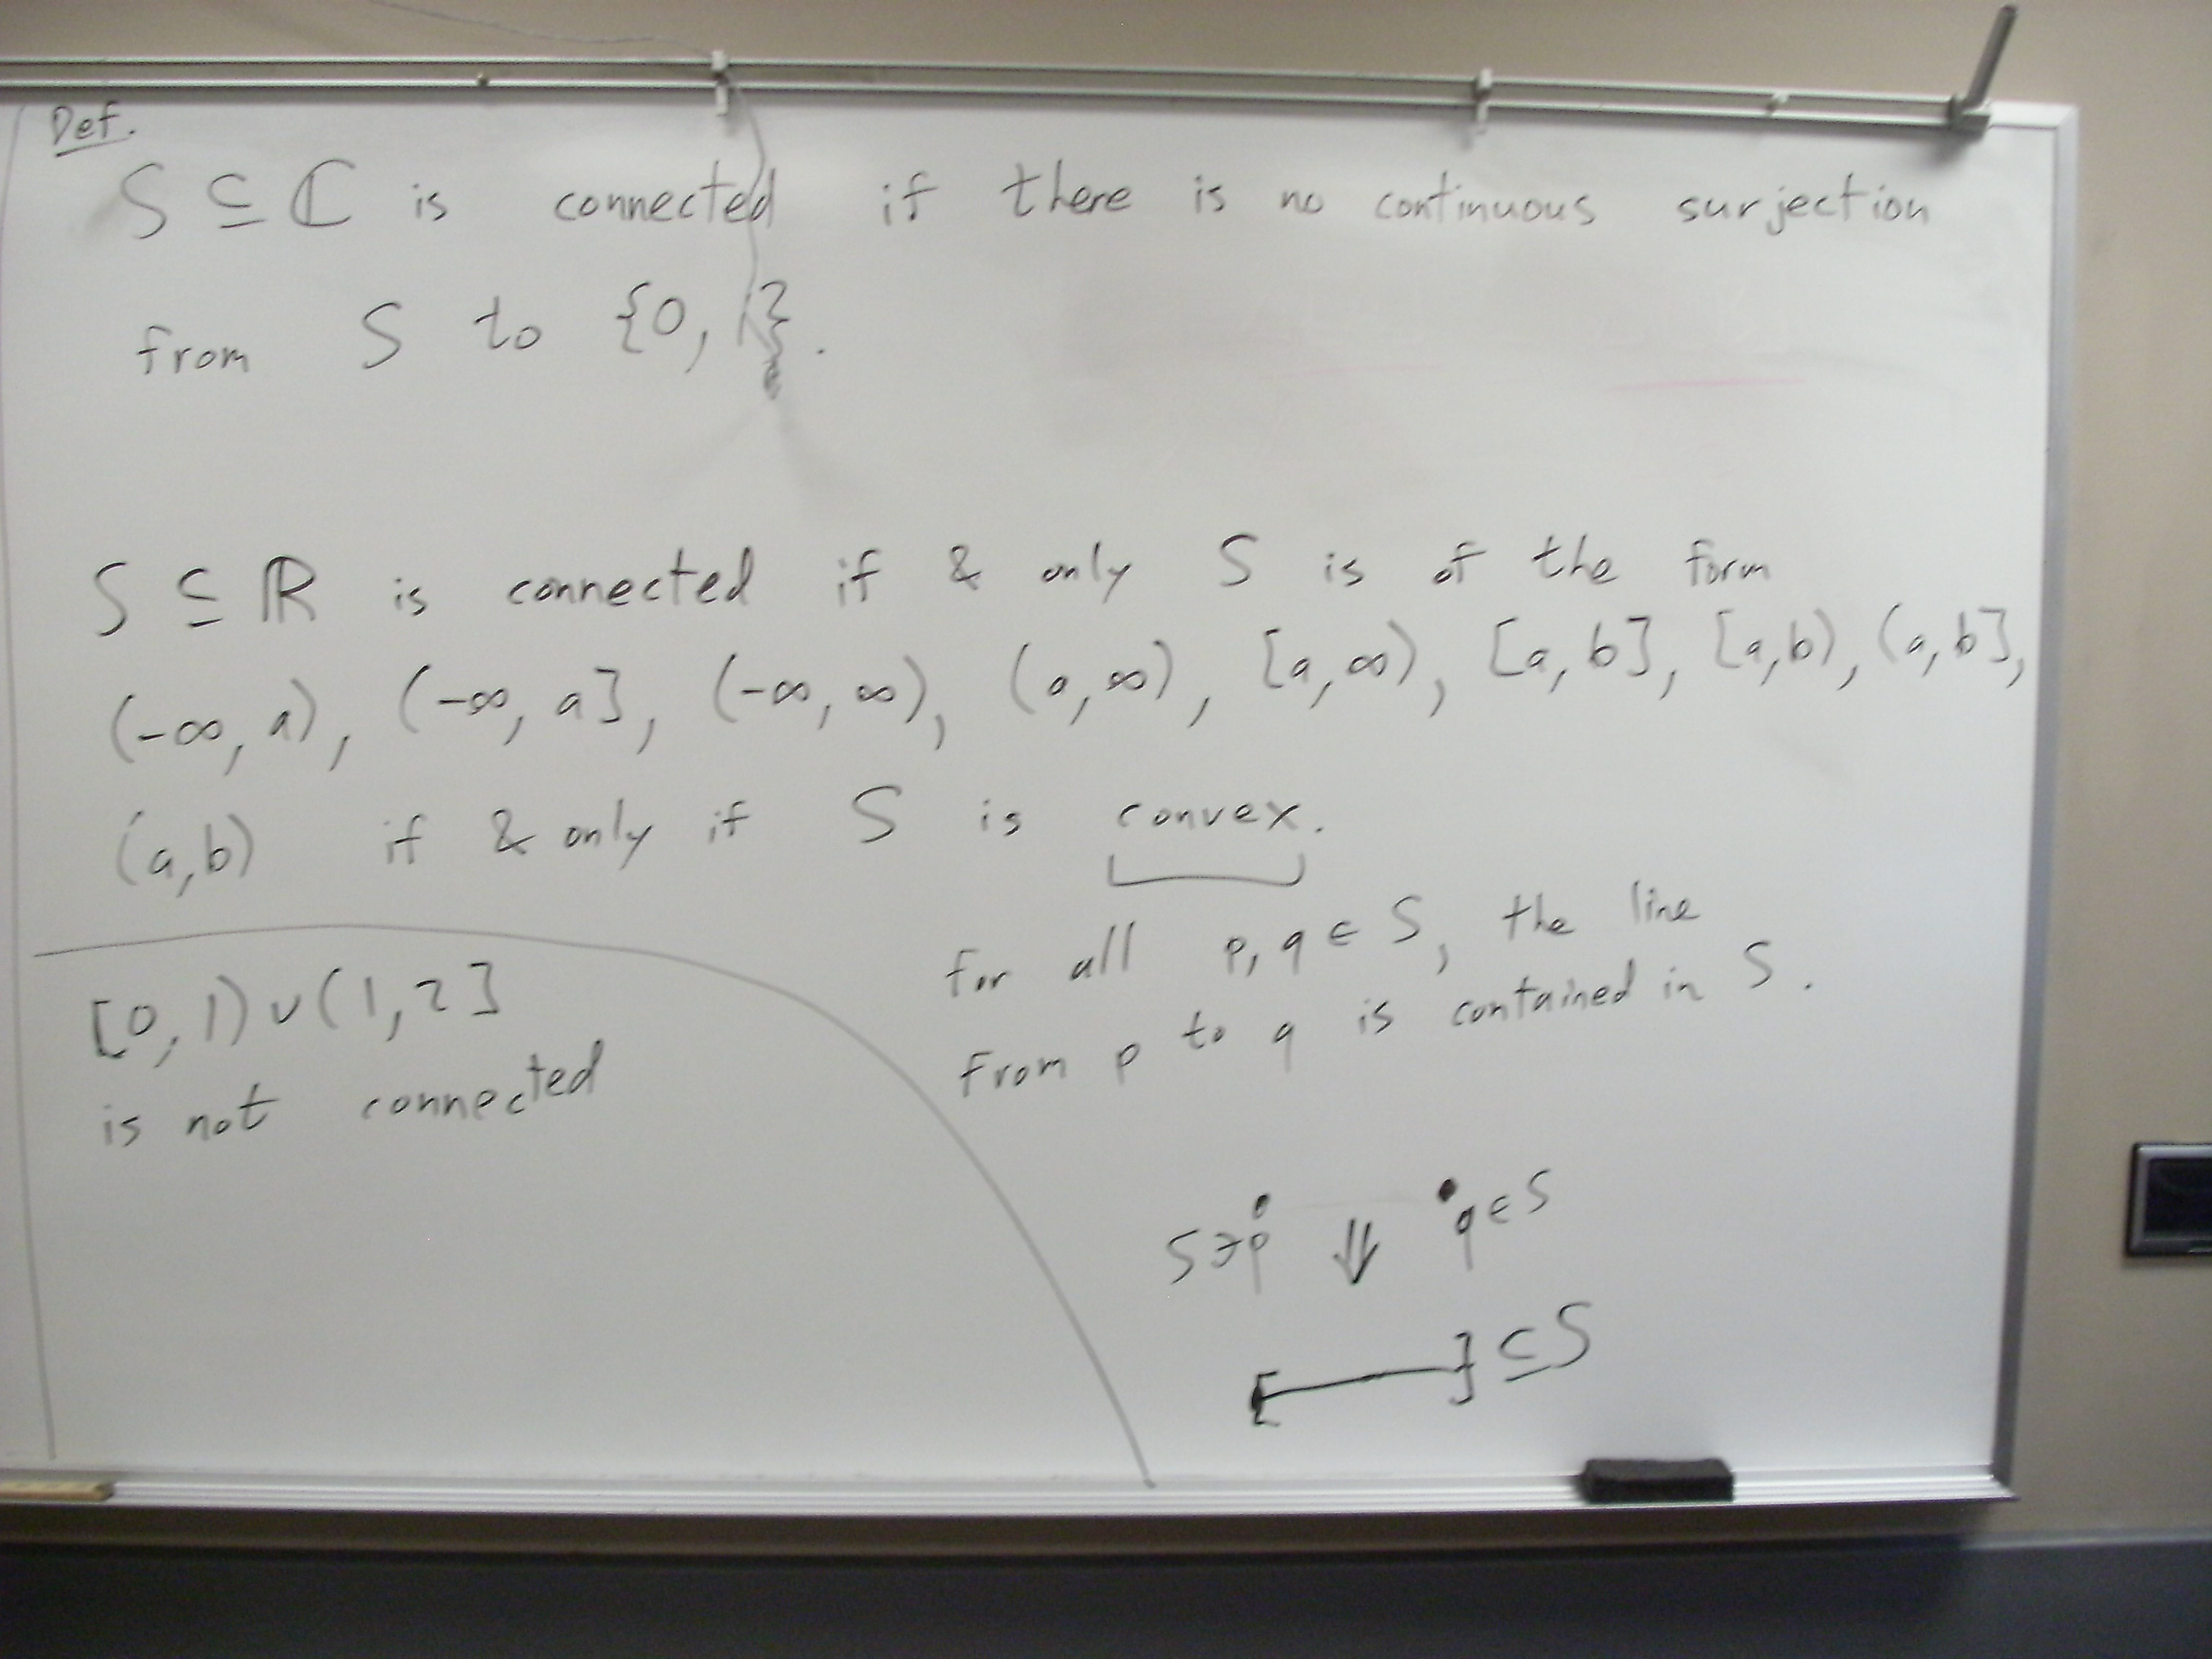 Def.
S ⊆ ℂ is connected if there is no continuous surjection
from S to {0, 1}.
S ⊆ ℝ is connected if & only S is of the form
(-∞, a), (-∞, a], (-∞, ∞), (a, ∞), [a, ∞), [a, b], [a, b), (a, b],
(a, b) if & only if S is convex.
for all p, q ∈ S, the line
from p to q is contained in S.
[0, 1) ∪ (1, 2]
is not connected
S ∋ p ⇓ q ∈ S
[ ] ⊆ S